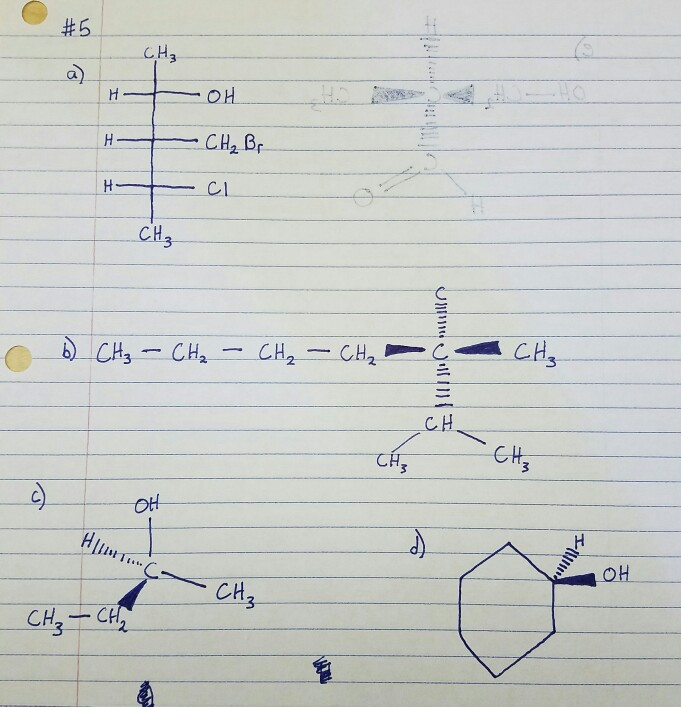 #5
a)
CH₃
H OH
H CH₂Br
H Cl
CH₃
b) CH₃ — CH₂ — CH₂ — CH₂ C CH₃
C
CH
CH₃ CH₃
c)
OH
H
C
CH₃
CH₃ — CH₂
d)
H
OH